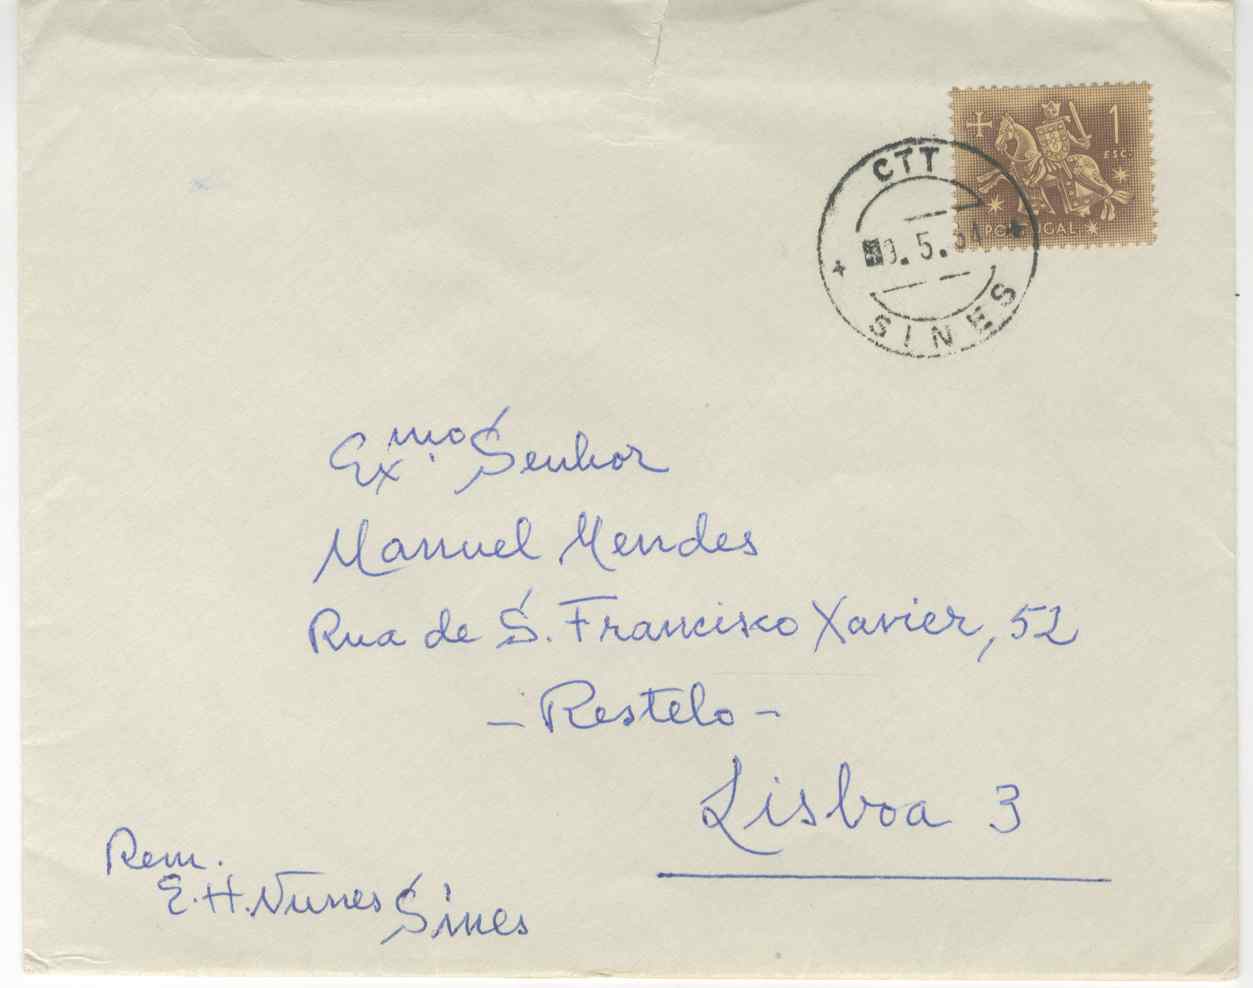 1
ESC.
PORTUGAL
CTT
9.5.
SINES
Exmo. Senhor
Manuel Mendes
Rua de S. Francisco Xavier, 52
- Restelo -
Lisboa 3
Rem.
E. H. Nunes Sines